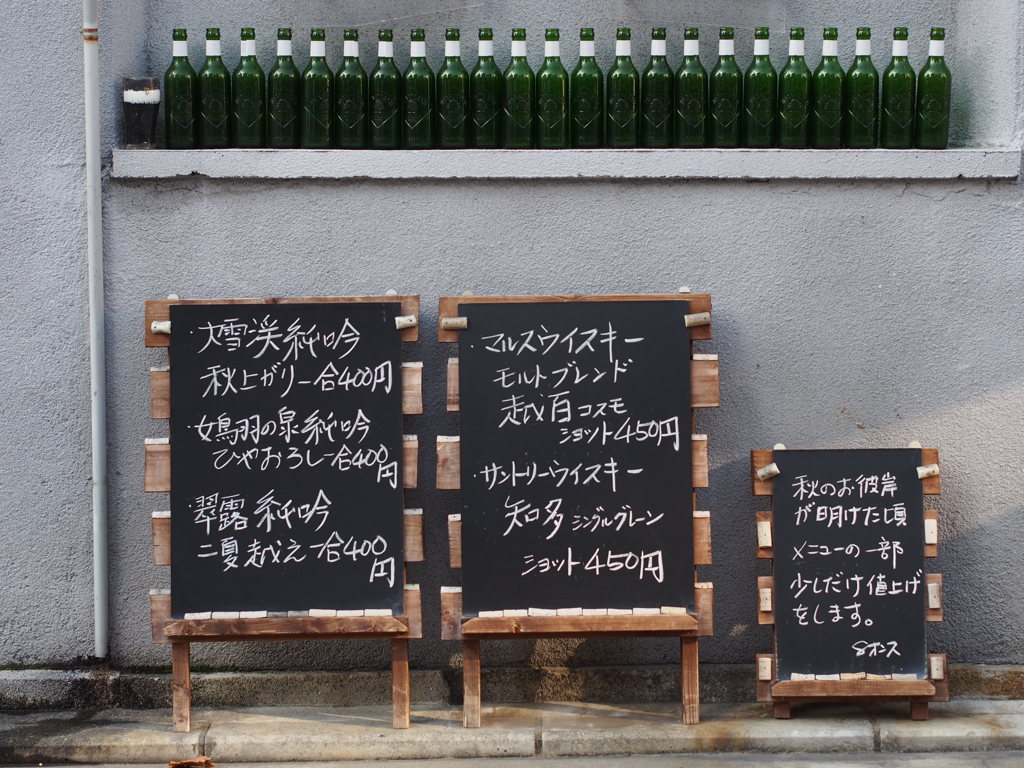 大雪渓純吟
秋上がり一合400円
嬬鳥羽の泉純吟
ひやおろし一合400円
翠露純吟
二夏越え一合400円
マルスウイスキー
モルトブレンド
越百コスモ
ショット450円
サントリーウイスキー
知多シングルグレーン
ショット450円
秋のお彼岸
が明けた頃
メニューの一部
少しだけ値上げ
をします。
8オンス